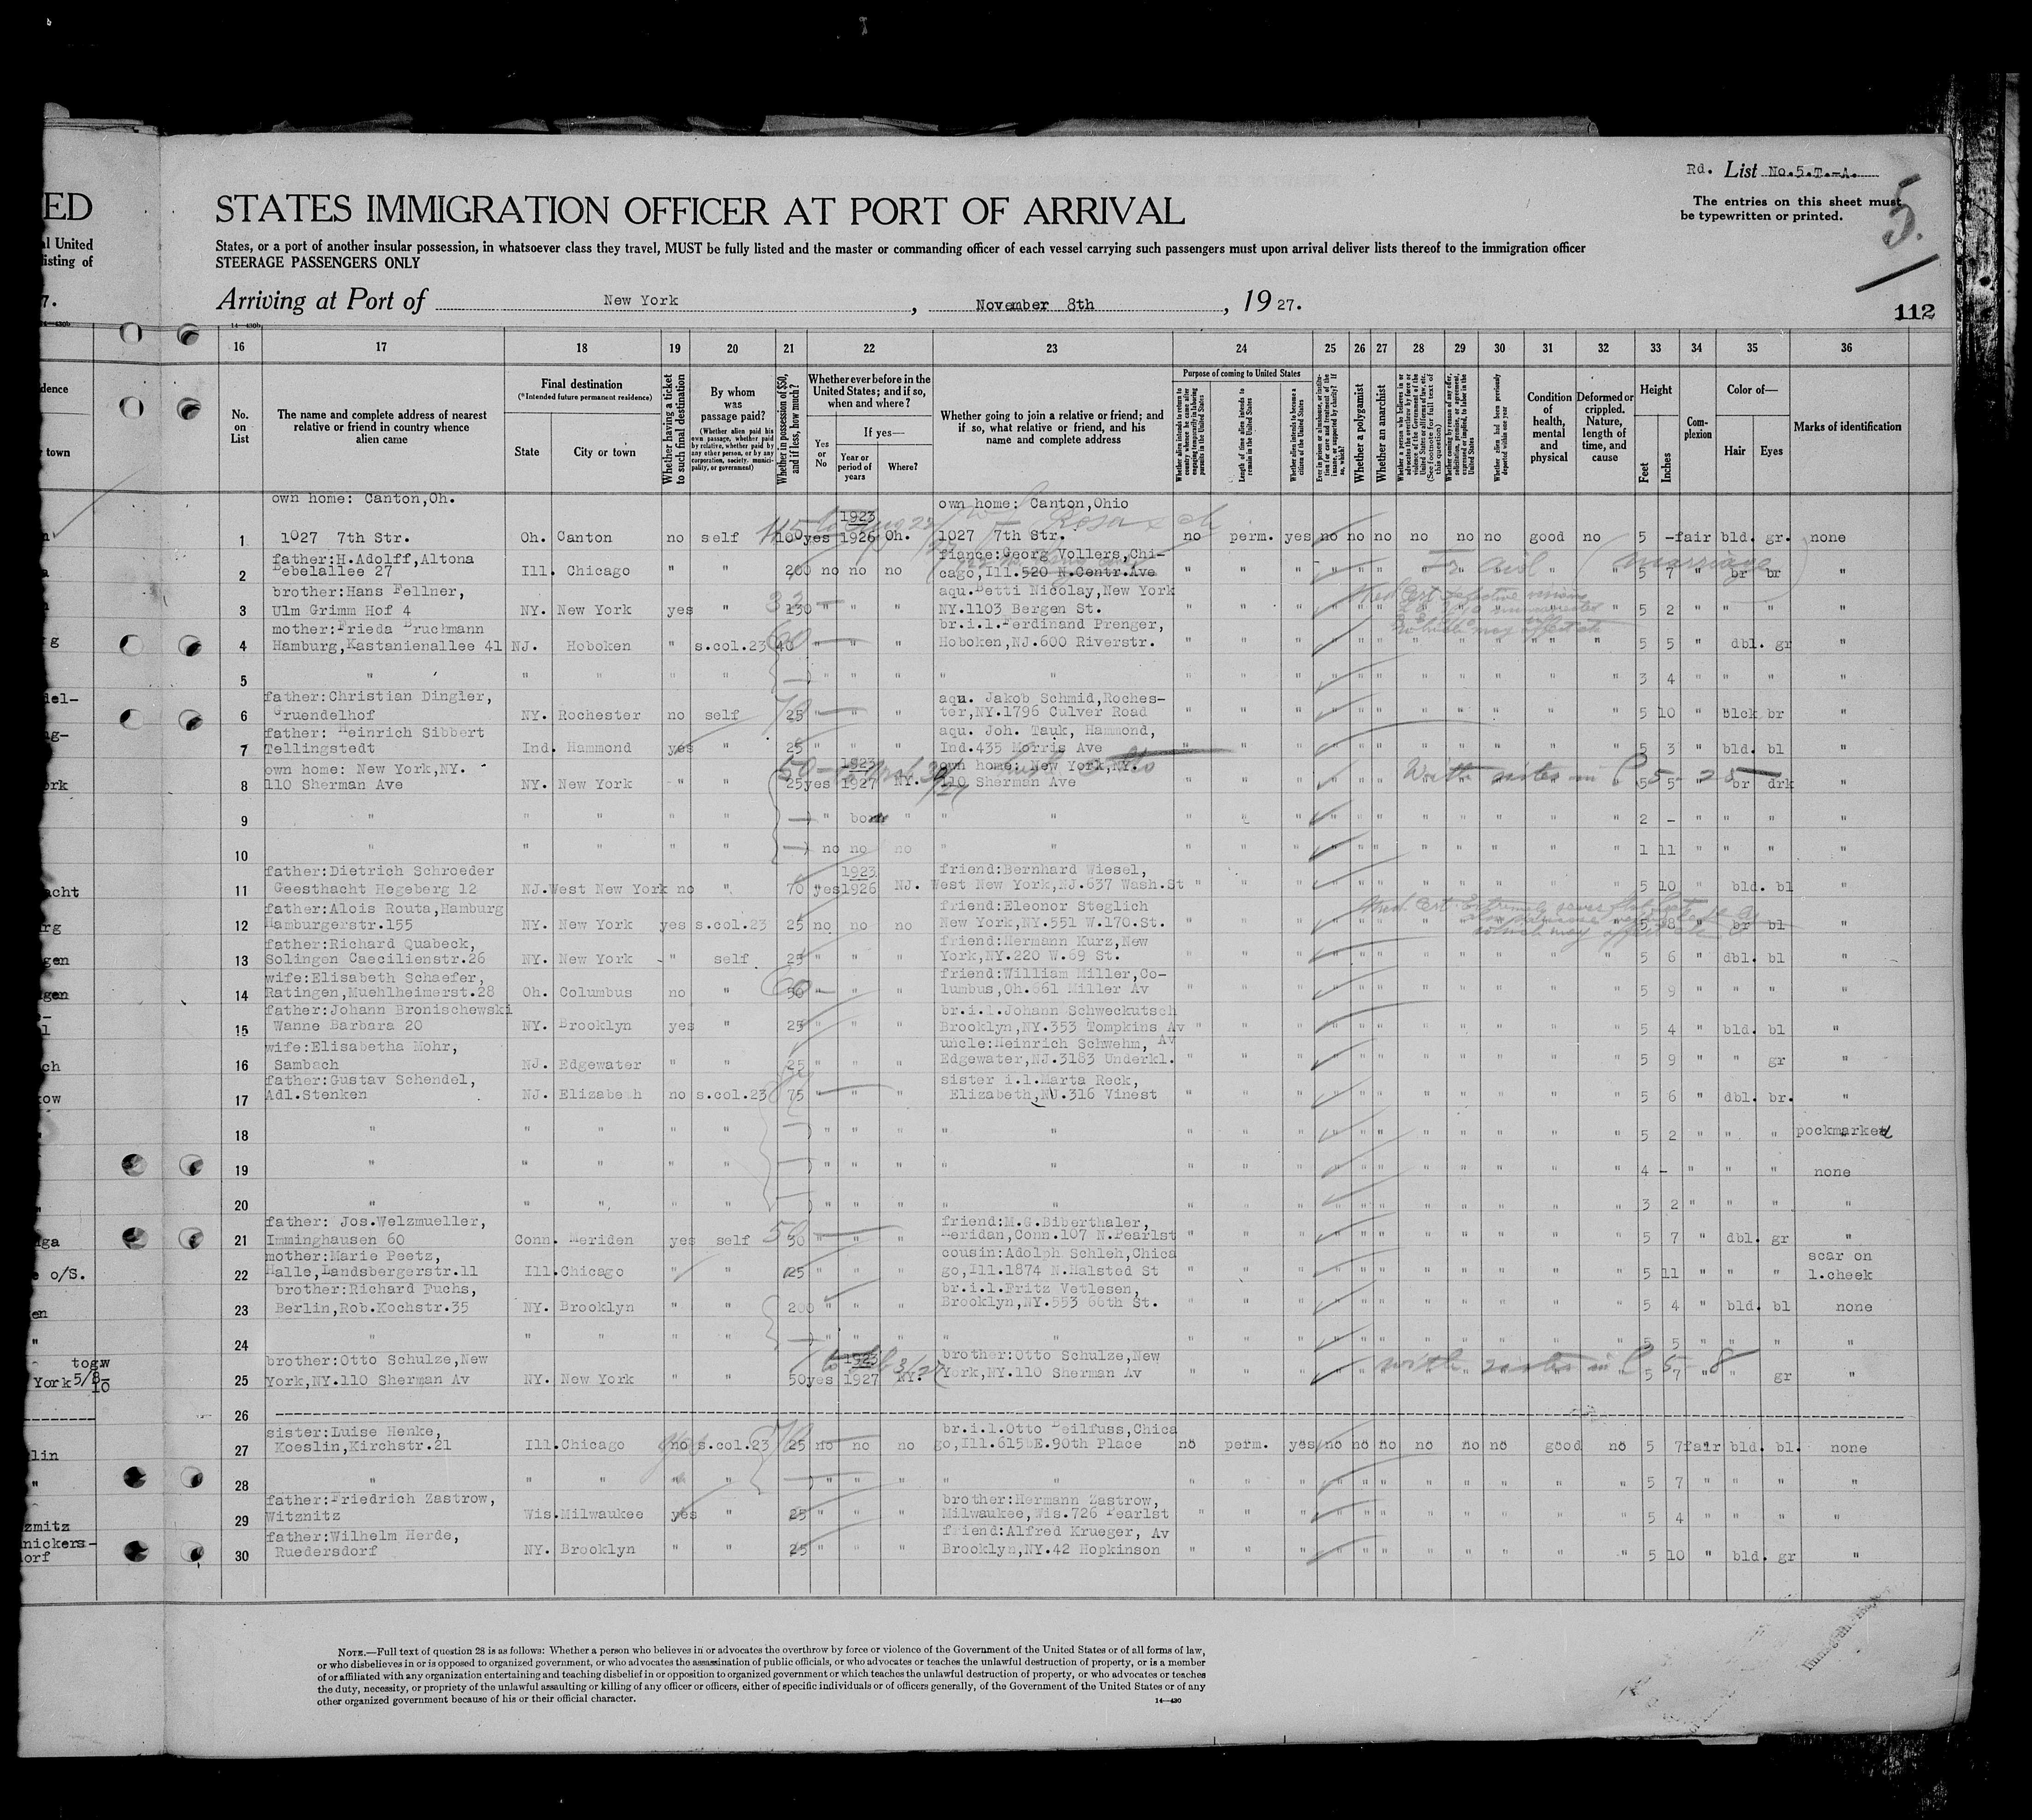 Rd. List No.5.T.-A.
5.
The entries on this sheet must
be typewritten or printed.
ED
STATES IMMIGRATION OFFICER AT PORT OF ARRIVAL
al United
isting of
States, or a port of another insular possession, in whatsoever class they travel, MUST be fully listed and the master or commanding officer of each vessel carrying such passengers must upon arrival deliver lists thereof to the immigration officer
STEERAGE PASSENGERS ONLY
7.
Arriving at Port of New York , November 8th , 19 27.
112
16 17 18 19 20 21 22 23 24 25 26 27 28 29 30 31 32 33 34 35 36
No. on List
The name and complete address of nearest relative or friend in country whence alien came
Final destination
(*Intended future permanent residence)
State
City or town
Whether having a ticket to such final destination
By whom was passage paid?
(Whether alien paid his own passage, whether paid by relative, whether paid by any other person, or by any corporation, society, municipality, or government)
Whether in possession of $50, and if less, how much?
Whether ever before in the United States; and if so, when and where?
Yes or No
If yes—
Year or period of years
Where?
Whether going to join a relative or friend; and if so, what relative or friend, and his name and complete address
Purpose of coming to United States
Whether alien intends to return to country whence he came after engaging temporarily in laboring pursuits in the United States
Length of time alien intends to remain in the United States
Whether alien intends to become a citizen of the United States
Whether a polygamist
Whether an anarchist
Whether alien had been previously deported within one year
Condition of health, mental and physical
Deformed or crippled. Nature, length of time, and cause
Height
Feet
Inches
Complexion
Color of—
Hair
Eyes
Marks of identification
own home: Canton,Oh. own home: Canton,Ohio
1923
1 1027 7th Str. Oh. Canton no self 100 yes 1926 Oh. 1027 7th Str. no perm. yes no no no no no no good no 5 - fair bld. gr. none
father:H.Adolff,Altona fiance:Georg Vollers,Chi-
2 Bebelallee 27 Ill. Chicago " " 200 no no no cago,Ill.520 N.Centr.Ave " " " " " " " " " " " 5 7 " br br "
(marriage)
brother:Hans Fellner, aqu.Betti Nicolay,New York
3 Ulm Grimm Hof 4 NY. New York yes " 130 " " " NY.1103 Bergen St. " " " " " " " " " " " 5 2 " " " "
mother:Frieda Bruchmann br.i.l.Ferdinand Prenger,
4 Hamburg,Kastanienallee 41 NJ. Hoboken " s.col.23 40 " " " Hoboken,NJ.600 Riverstr. " " " " " " " " " " " 5 5 " dbl. gr "
5 " " " " " " " " " " " " " " " " " " " " " 3 4 " " " "
father:Christian Dingler, aqu. Jakob Schmid,Roches-
6 Gruendelhof NY. Rochester no self 25 " " " ter,NY.1796 Culver Road " " " " " " " " " " " 5 10 " blck br "
father: Heinrich Sibbert aqu. Joh. Tauk, Hammond,
7 Tellingstedt Ind. Hammond yes " 25 " " " Ind.435 Morris Ave " " " " " " " " " " " 5 3 " bld. bl "
own home: New York,NY. 1923 own home: New York,NY.
8 110 Sherman Ave NY. New York " " 25 yes 1927 NY. 110 Sherman Ave " " " " " " " " " " " 5 5 " br drk "
9 " " " " " " born " " " " " " " " " " " " " " 2 - " " " "
10 " " " " " no no no " " " " " " " " " " " " " 1 11 " " " "
father:Dietrich Schroeder 1923 friend:Bernhard Wiesel,
11 Geesthacht Hegeberg 12 NJ. West New York no " 70 yes 1926 NJ. West New York,NJ.637 Wash.St " " " " " " " " " " " 5 10 " bld. bl "
father:Alois Routa,Hamburg friend:Eleonor Steglich
12 Hamburgerstr.155 NY. New York yes s.col.23 25 no no no New York,NY.551 W.170.St. " " " " " " " " " " " 5 8 " br bl "
father:Richard Quabeck, friend:Hermann Kurz,New
13 Solingen Caecilienstr.26 NY. New York " self 25 " " " York,NY.220 W.69 St. " " " " " " " " " " " 5 6 " dbl. bl "
wife:Elisabeth Schaefer, friend:William Miller,Co-
14 Ratingen,Muehlheimerst.28 Oh. Columbus no " 50 " " " lumbus,Oh.661 Miller Av " " " " " " " " " " " 5 9 " " " "
father:Johann Bronischewski br.i.l.Johann Schweckutsch
15 Wanne Barbara 20 NY. Brooklyn yes " 25 " " " Brooklyn,NY.353 Tompkins Av " " " " " " " " " " " 5 4 " bld. bl "
wife:Elisabetha Mohr, uncle:Heinrich Schwehm, Av
16 Sambach NJ. Edgewater " " 25 " " " Edgewater,NJ.3183 Underkl. " " " " " " " " " " " 5 9 " " gr "
father:Gustav Schendel, sister i.l.Marta Reck,
17 Adl.Stenken NJ. Elizabeth no s.col.23 75 " " " Elizabeth,NJ.316 Vinest " " " " " " " " " " " 5 6 " dbl. br. "
18 " " " " " " " " " " " " " " " " " " " " " 5 2 " " " pockmarked
19 " " " " " " " " " " " " " " " " " " " " " 4 - " " " none
20 " " " " " " " " " " " " " " " " " " " " " 3 2 " " " "
father: Jos.Welzmueller, friend:M.G.Biberthaler,
21 Imminghausen 60 Conn. Meriden yes self 50 " " " Meridan,Conn.107 N.Pearlst " " " " " " " " " " " 5 7 " dbl. gr "
mother:Marie Peetz, cousin:Adolph Schleh,Chica scar on
22 Halle,Landsbergerstr.11 Ill. Chicago " " 25 " " " go,Ill.1874 N.Halsted St " " " " " " " " " " " 5 11 " " " l.cheek
brother:Richard Fuchs, br.i.l.Fritz Vetlesen,
23 Berlin,Rob.Kochstr.35 NY. Brooklyn " " 200 " " " Brooklyn,NY.553 66th St. " " " " " " " " " " " 5 4 " bld. bl none
24 " " " " " " " " " " " " " " " " " " " " " 5 5 " " " "
brother:Otto Schulze,New 1923 brother:Otto Schulze,New
25 York,NY.110 Sherman Av NY. New York " " 50 yes 1927 NY. York,NY.110 Sherman Av " " " " " " " " " " " 5 7 " " gr "
26
sister:Luise Henke, br.i.l.Otto Beilfuss,Chica
27 Koeslin,Kirchstr.21 Ill. Chicago no s.col.23 25 no no no go,Ill.615 E.90th Place no perm. yes no no no no no no good no 5 7 fair bld. bl. none
28 " " " " " " " " " " " " " " " " " " " " " 5 7 " " " "
father:Friedrich Zastrow, brother:Hermann Zastrow,
29 Witznitz Wis. Milwaukee yes " 25 " " " Milwaukee,Wis.726 Pearlst " " " " " " " " " " " 5 4 " " " "
father:Wilhelm Herde, friend:Alfred Krueger, Av
30 Ruedersdorf NY. Brooklyn " " 25 " " " Brooklyn,NY.42 Hopkinson " " " " " " " " " " " 5 10 " bld. gr "
NOTE.—Full text of question 28 is as follows: Whether a person who believes in or advocates the overthrow by force or violence of the Government of the United States or of all forms of law,
or who disbelieves in or is opposed to organized government, or who advocates the assassination of public officials, or who advocates or teaches the unlawful destruction of property, or is a member
of or affiliated with any organization entertaining and teaching disbelief in or opposition to organized government or which teaches the unlawful destruction of property, or who advocates or teaches
the duty, necessity, or propriety of the unlawful assaulting or killing of any officer or officers, either of specific individuals or of officers generally, of the Government of the United States or of any
other organized government because of his or their official character.
14—430